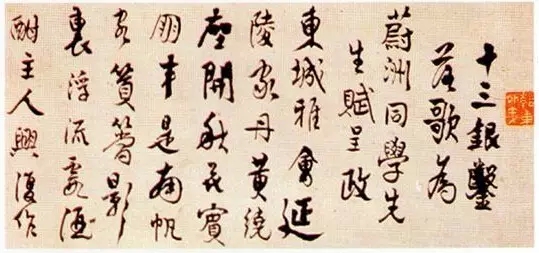 十三銀鑿
落歌為
蔚洲同學先
生賦呈政
東城雅會延
陵家丹黄繞
座開秋花賓
朋半是南帆
客篔簹影
裏浮流霞酒
酣主人興復作